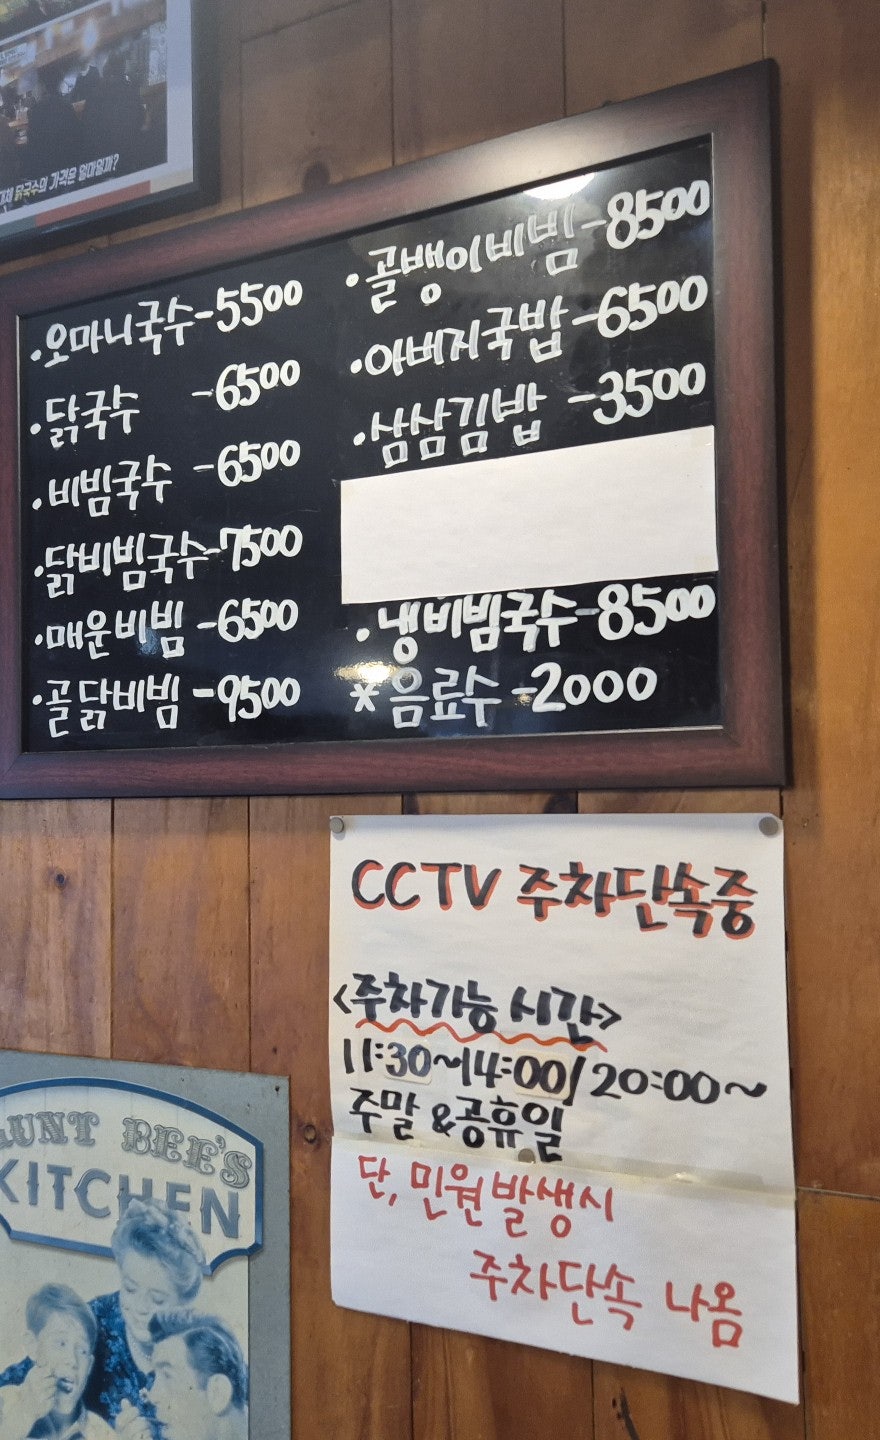 닭국수의 가격은 얼마일까?
·오마니국수-5500
·닭국수 -6500
·비빔국수 -6500
·닭비빔국수-7500
·매운비빔 -6500
·골닭비빔 -9500
·골뱅이비빔-8500
·아버지국밥-6500
·삼삼김밥 -3500
·냉비빔국수-8500
*음료수-2000
CCTV 주차단속중
<주차가능 시간>
11:30~14:00/20:00~
주말 &공휴일
단, 민원발생시
주차단속 나옴
AUNT BEE'S
KITCHEN